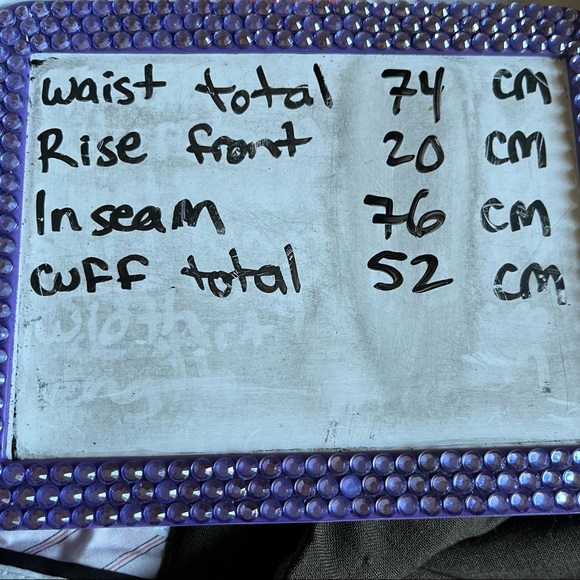 waist total 74 cm
Rise front 20 cm
Inseam 76 cm
cuff total 52 cm
width